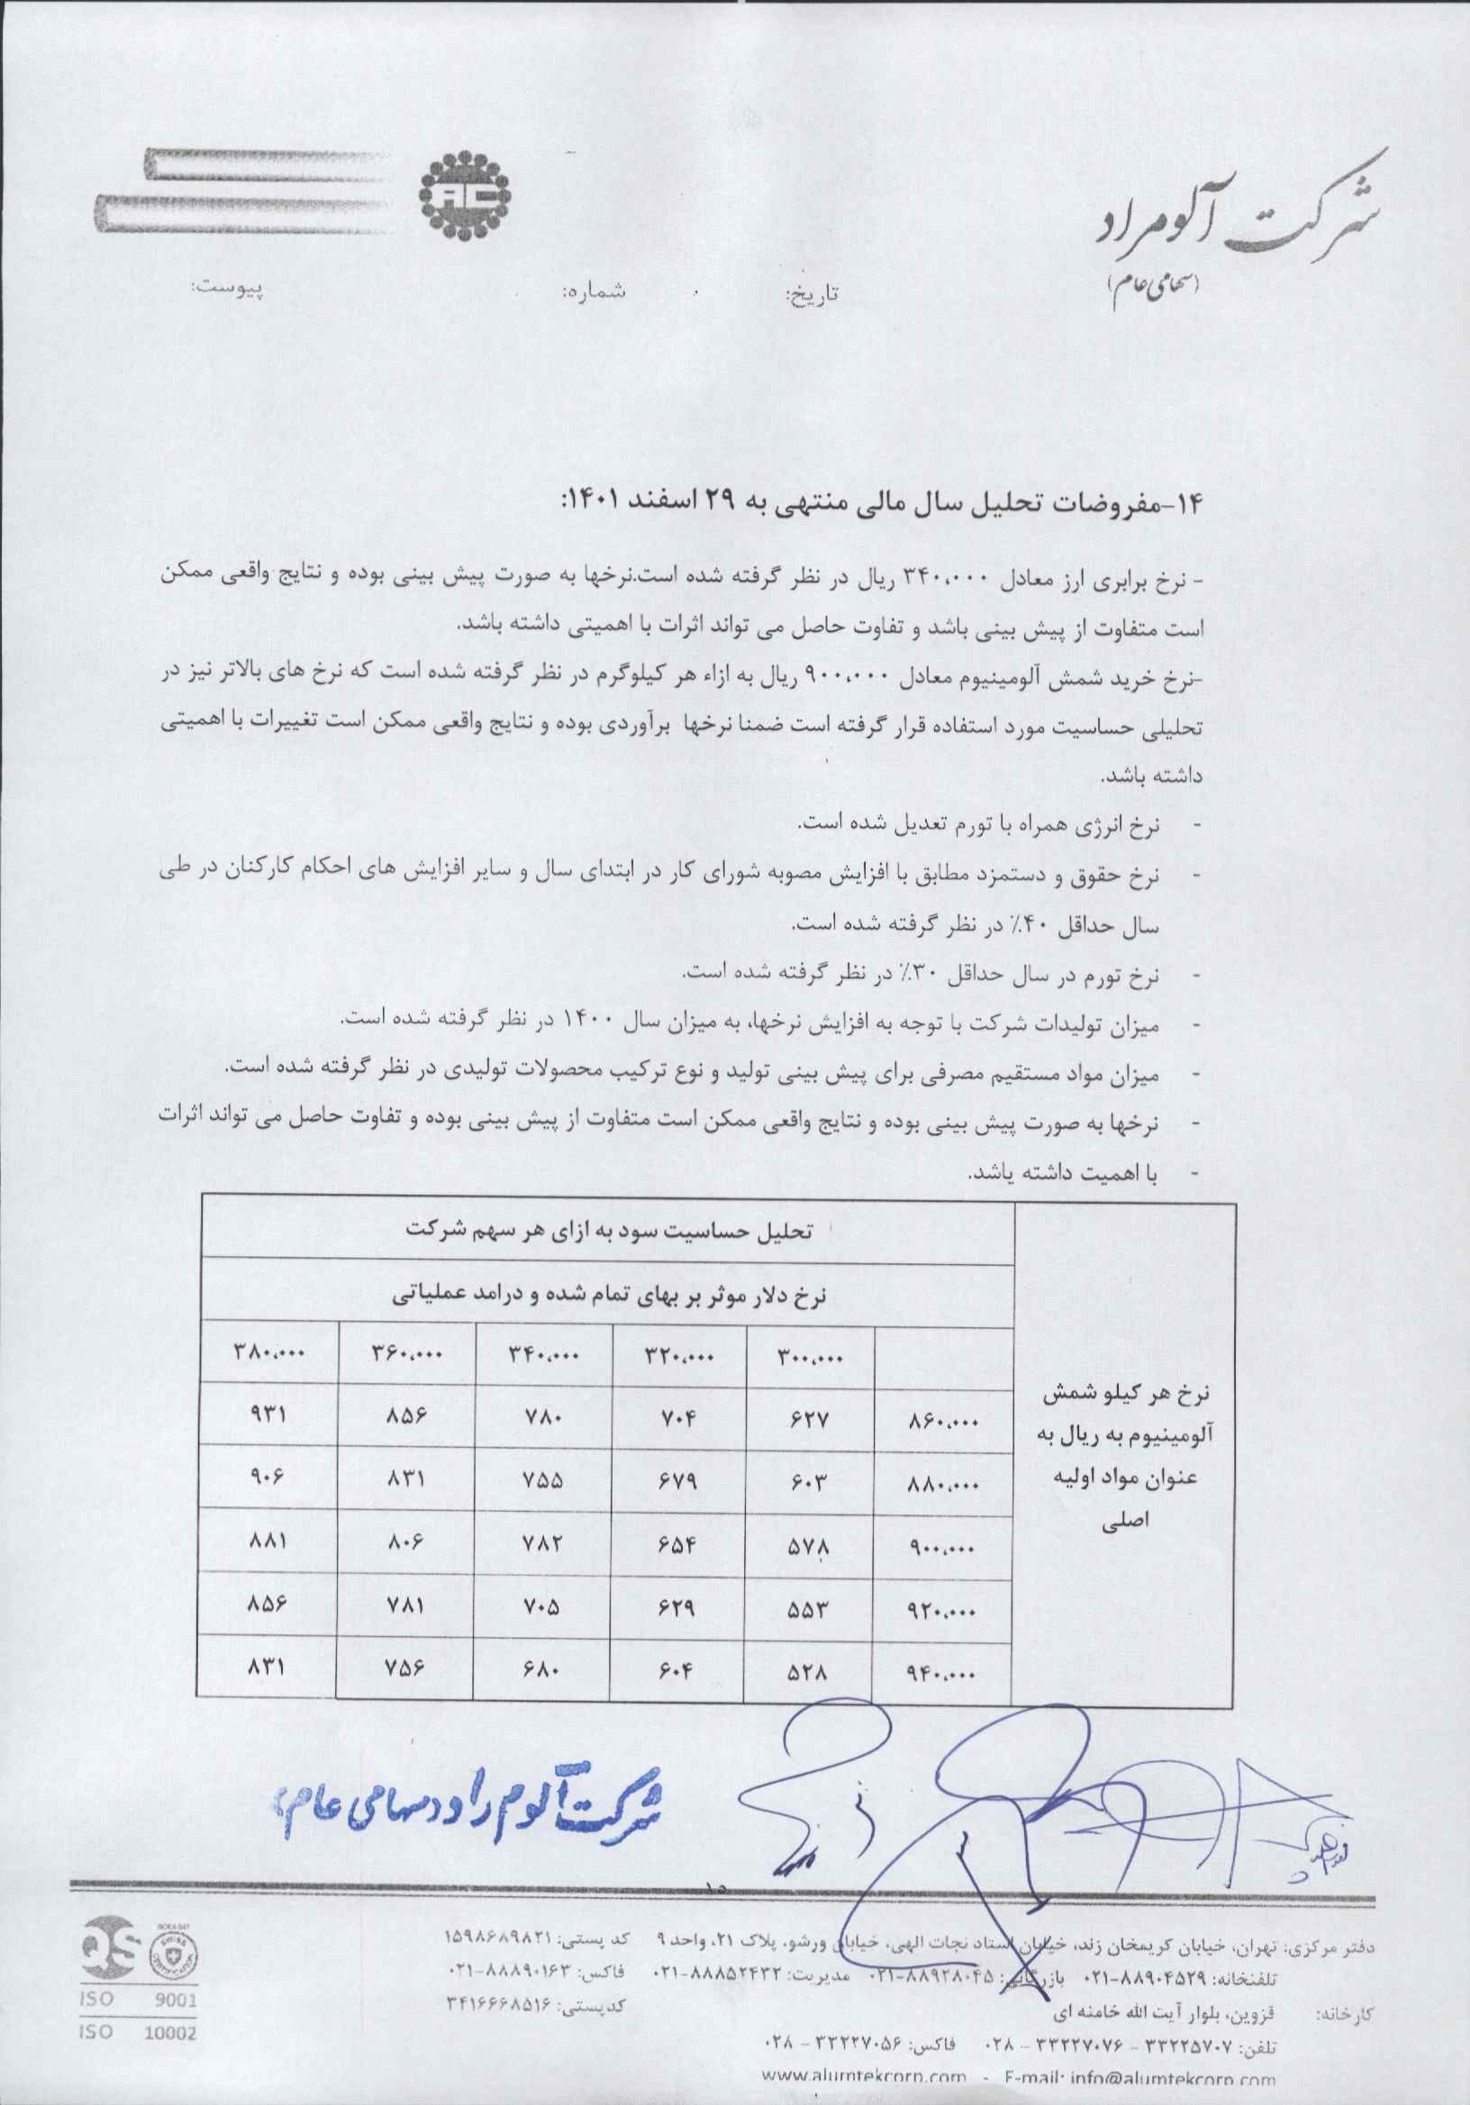 شرکت آلومراد
(سهامی عام)
AC
تاریخ:
شماره:
پیوست:
۱۴-مفروضات تحلیل سال مالی منتهی به ۲۹ اسفند ۱۴۰۱:
- نرخ برابری ارز معادل ۳۴۰،۰۰۰ ریال در نظر گرفته شده است.نرخها به صورت پیش بینی بوده و نتایج واقعی ممکن
است متفاوت از پیش بینی باشد و تفاوت حاصل می تواند اثرات با اهمیتی داشته باشد.
-نرخ خرید شمش آلومینیوم معادل ۹۰۰،۰۰۰ ریال به ازاء هر کیلوگرم در نظر گرفته شده است که نرخ های بالاتر نیز در
تحلیلی حساسیت مورد استفاده قرار گرفته است ضمنا نرخها برآوردی بوده و نتایج واقعی ممکن است تغییرات با اهمیتی
داشته باشد.
- نرخ انرژی همراه با تورم تعدیل شده است.
- نرخ حقوق و دستمزد مطابق با افزایش مصوبه شورای کار در ابتدای سال و سایر افزایش های احکام کارکنان در طی
سال حداقل ۴۰٪ در نظر گرفته شده است.
- نرخ تورم در سال حداقل ۳۰٪ در نظر گرفته شده است.
- میزان تولیدات شرکت با توجه به افزایش نرخها، به میزان سال ۱۴۰۰ در نظر گرفته شده است.
- میزان مواد مستقیم مصرفی برای پیش بینی تولید و نوع ترکیب محصولات تولیدی در نظر گرفته شده است.
- نرخها به صورت پیش بینی بوده و نتایج واقعی ممکن است متفاوت از پیش بینی بوده و تفاوت حاصل می تواند اثرات
- با اهمیت داشته یاشد.
تحلیل حساسیت سود به ازای هر سهم شرکت
نرخ دلار موثر بر بهای تمام شده و درامد عملیاتی
نرخ هر کیلو شمش
آلومینیوم به ریال به
عنوان مواد اولیه
اصلی
۳۰۰،۰۰۰ ۳۲۰،۰۰۰ ۳۴۰،۰۰۰ ۳۶۰،۰۰۰ ۳۸۰،۰۰۰
۸۶۰،۰۰۰ ۶۲۷ ۷۰۴ ۷۸۰ ۸۵۶ ۹۳۱
۸۸۰،۰۰۰ ۶۰۳ ۶۷۹ ۷۵۵ ۸۳۱ ۹۰۶
۹۰۰،۰۰۰ ۵۷۸ ۶۵۴ ۷۸۲ ۸۰۶ ۸۸۱
۹۲۰،۰۰۰ ۵۵۳ ۶۲۹ ۷۰۵ ۷۸۱ ۸۵۶
۹۴۰،۰۰۰ ۵۲۸ ۶۰۴ ۶۸۰ ۷۵۶ ۸۳۱
شرکت آلوم راد (سهامی عام)
۱۵
دفتر مرکزی: تهران، خیابان کریمخان زند، خیابان استاد نجات الهی، خیابان ورشو، پلاک ۲۱، واحد ۹ کد پستی: ۱۵۹۸۶۸۹۸۲۱
تلفنخانه: ۸۸۹۰۴۵۲۹-۰۲۱ بازرگانی: ۸۸۹۲۸۰۴۵-۰۲۱ مدیریت: ۸۸۸۵۲۴۳۲-۰۲۱ فاکس: ۸۸۸۹۰۱۶۳-۰۲۱
کارخانه: قزوین، بلوار آیت الله خامنه ای کدپستی: ۳۴۱۶۶۶۸۵۱۶
تلفن: ۳۳۲۲۵۷۰۷ - ۳۳۲۲۷۰۷۶ - ۰۲۸ فاکس: ۳۳۲۲۷۰۵۶ - ۰۲۸
www.alumtekcorp.com - E-mail: info@alumtekcorp.com
QS
SWISS
ISO 9001
ISO 10002